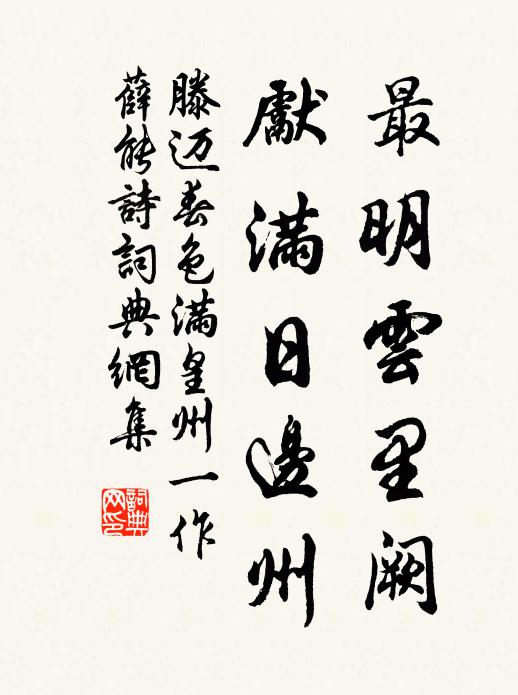 最明雲里闕
獻滿日邊州
滕迈春色滿皇州一作
薛能詩詞典網集
詞典网印